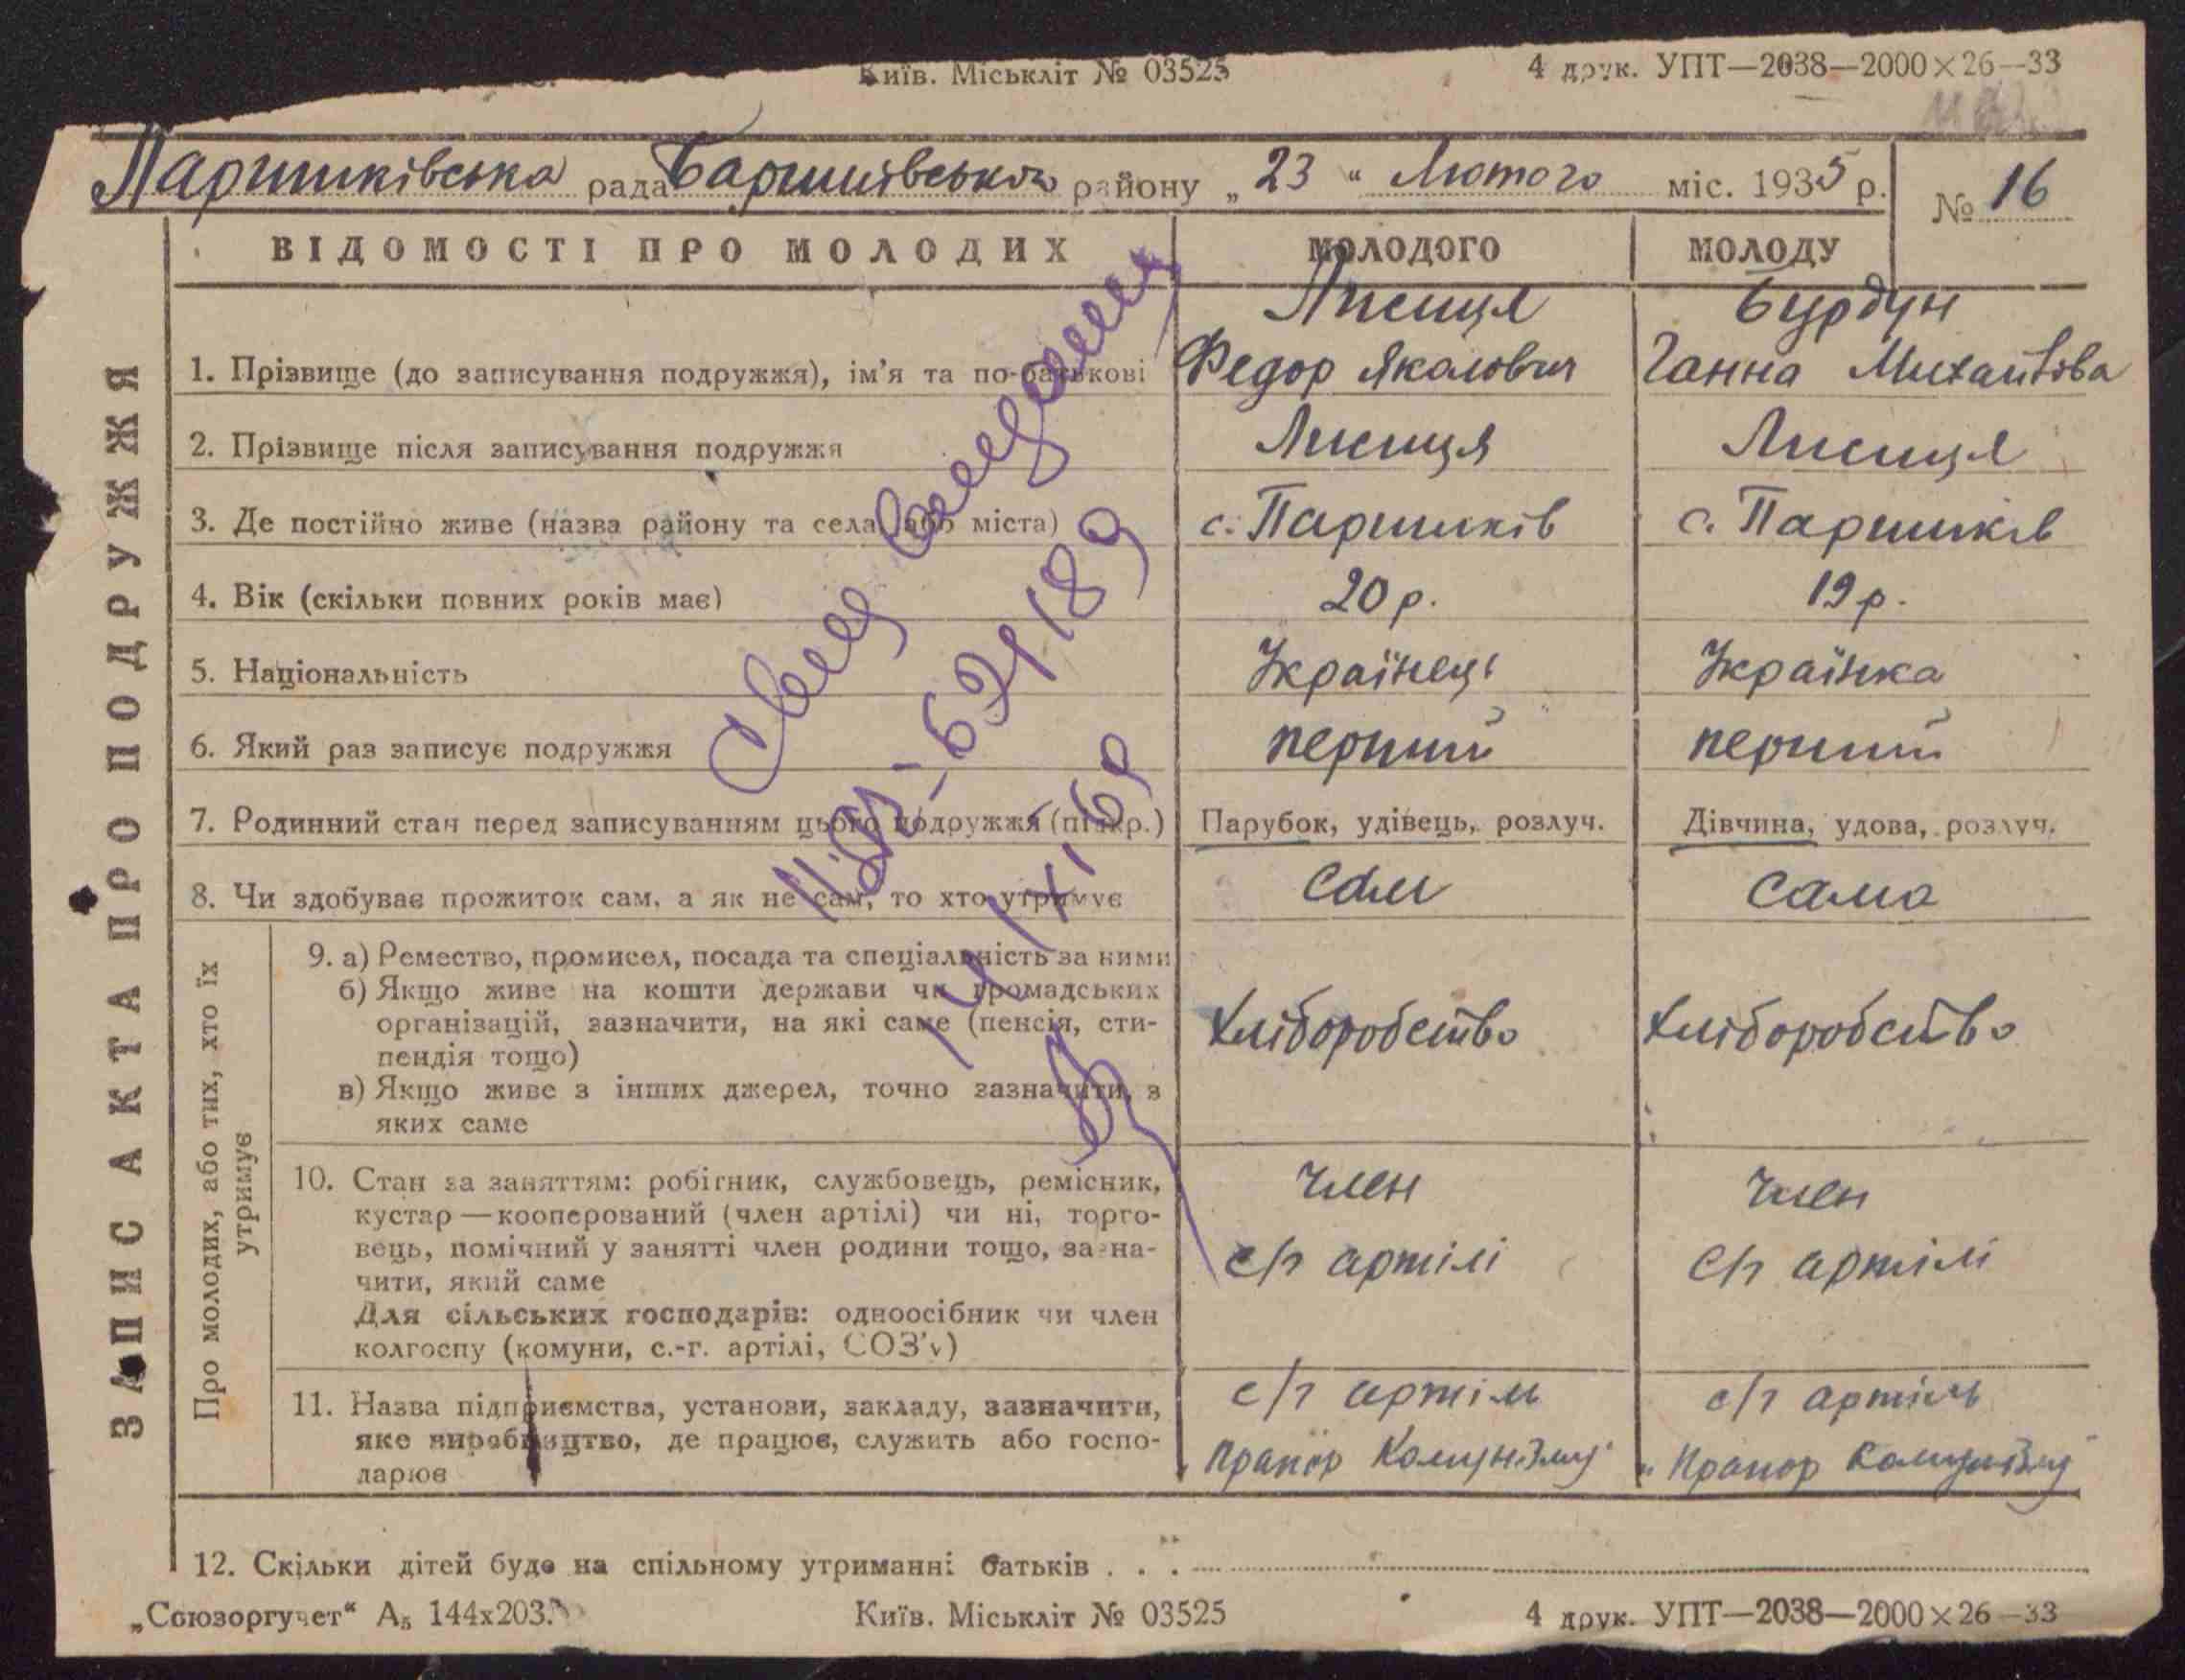 Київ. Міськліт № 03525 4 друк. УПТ—2038—2000×26—33
Паришківська рада Баришівського району „23“ Лютого міс. 1935 р. № 16
ВІДОМОСТІ ПРО МОЛОДИХ МОЛОДОГО МОЛОДУ
Лисиця Бурдун
1. Прізвище (до записування подружжя), ім'я та по-батькові Федор Якович Ганна Михайлова
2. Прізвище після записування подружжя Лисиця Лисиця
3. Де постійно живе (назва району та села або міста) с. Паришків с. Паришків
4. Вік (скільки повних років має) 20 р. 19 р.
5. Національність Українець Українка
6. Який раз записує подружжя перший перший
7. Родинний стан перед записуванням цього подружжя (підкр.) Парубок, удівець, розлуч. Дівчина, удова, розлуч.
8. Чи здобуває прожиток сам, а як не сам, то хто утримує сам сама
ЗАПИС АКТА ПРО ПОДРУЖЖЯ
Про молодих, або тих, хто їх
утримує
9. а) Ремество, промисел, посада та спеціальність за ними
б) Якщо живе на кошти держави чи громадських
організацій, зазначити, на які саме (пенсія, сти-
пендія тощо)
в) Якщо живе з інших джерел, точно зазначити, з
яких саме
хліборобство хліборобство
10. Стан за заняттям: робітник, службовець, ремісник,
кустар—кооперований (член артілі) чи ні, торго-
вець, помічний у занятті член родини тощо, зазна-
чити, який саме
Для сільських господарів: одноосібник чи член
колгоспу (комуни, с.-г. артілі, СОЗ'у)
член член
с/г артілі с/г артілі
11. Назва підприємства, установи, закладу, зазначити,
яке виробництво, де працює, служить або госпо-
дарює
с/г артіль с/г артіль
„Прапор Комунізму" „Прапор Комунізму"
12. Скільки дітей буде на спільному утриманні батьків . . .
„Союзоргучет“ А₅ 144х203. Київ. Міськліт № 03525 4 друк. УПТ—2038—2000×26—33